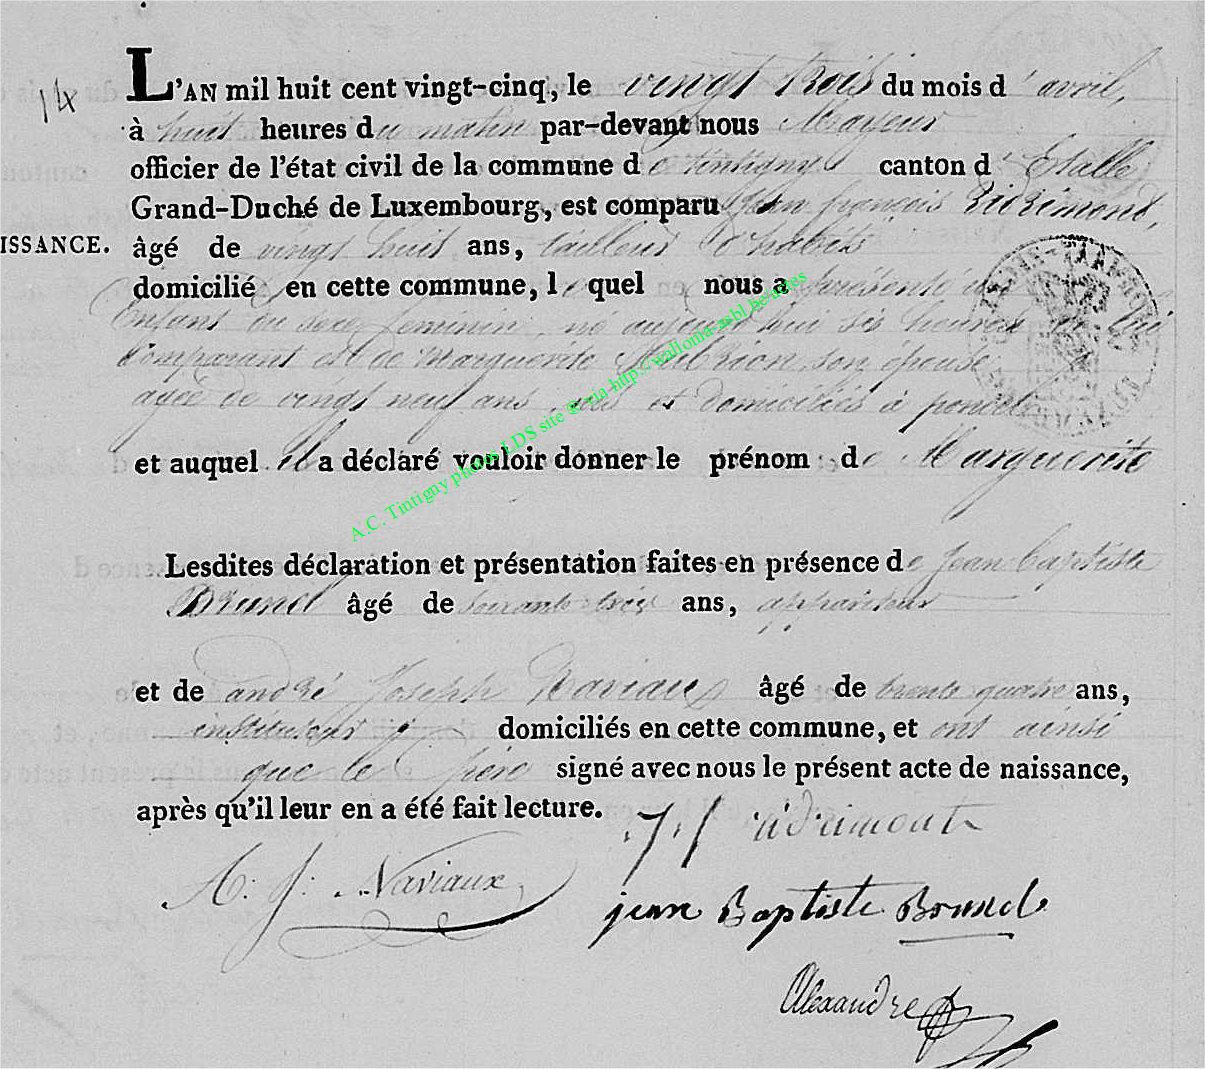 14
L'AN mil huit cent vingt-cinq, le vingt trois du mois d'avril,
à huit heures du matin par-devant nous Mayeur
officier de l'état civil de la commune de tintigny canton d'Etalle
Grand-Duché de Luxembourg, est comparu Jean françois
ISSANCE. âgé de vingt huit ans, tailleur d'habits
domicilié en cette commune, lequel nous a présenté un
Enfant du sexe feminin, né aujourd'hui six heures
Comparant et de Marguerite son épouse
agée de vingt neuf ans et domiciliés à poncel
et auquel il a déclaré vouloir donner le prénom de Marguerite
A.C. Tintigny photos LDS site @ via http://wallonia-asbl.be/actes
Lesdites déclaration et présentation faites en présence de Jean baptiste
Brunel âgé de soixante trois ans, appariteur
et de andré Joseph Naviaux âgé de trente quatre ans,
instituteur domiciliés en cette commune, et ont ainsi
que le père signé avec nous le présent acte de naissance,
après qu'il leur en a été fait lecture.
A: J: Naviaux
jean Baptiste Brunel
Alexandre